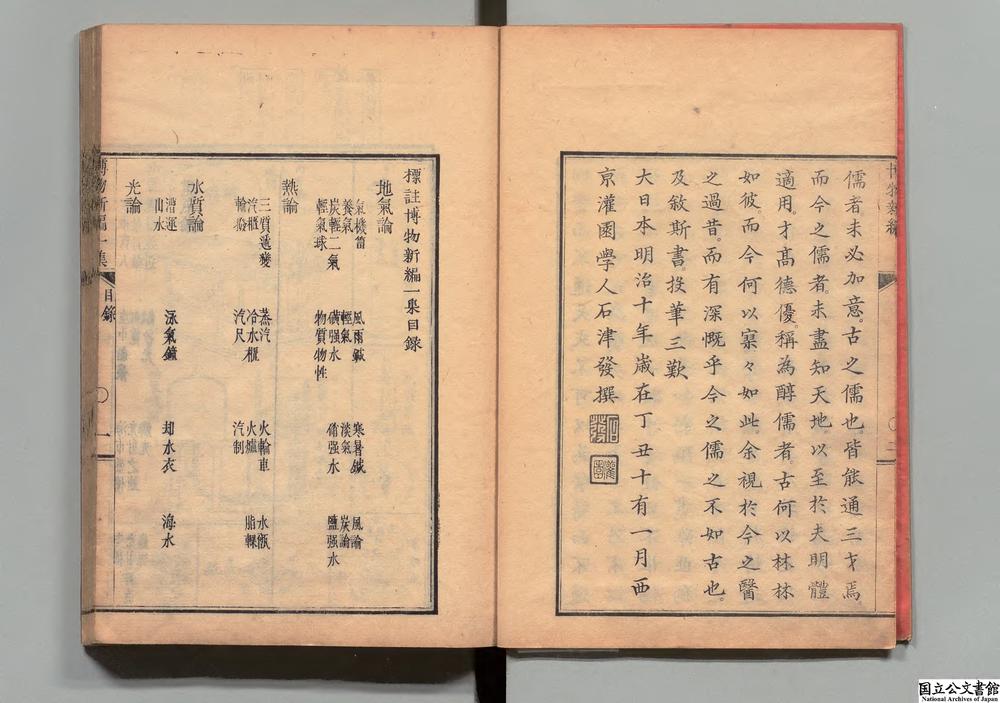 博物新編
〇二
儒者未必加意。古之儒也。皆能通三才焉。
而今之儒者。未盡知天地。以至於夫明體
適用。才高德優。稱為醇儒者。古何以林林
如彼。而今何以寥々如此。余視於今之醫
之過昔。而有深慨乎今之儒之不如古也。
及敘斯書。投筆三歎
大日本明治十年歲在丁丑十有一月西
京灌園學人石津發撰
灌園
標註博物新編一集目録
地氣論
氣機筩 風雨鍼 寒暑鍼 風論
養氣 輕氣 淡氣 炭論
炭輕二氣 磺强水 硝强水 鹽强水
輕氣球 物質物性
熱論
三質遞變 蒸汽 火輪車 水甑
汽櫃 冷水櫃 火爐 脂輠
輪撥 汽尺 汽制
水質論
漕運 泳氣鐘 却水衣 海水
山水
光論
博物新編一集 目錄 〇一
国立公文書館
National Archives of Japan